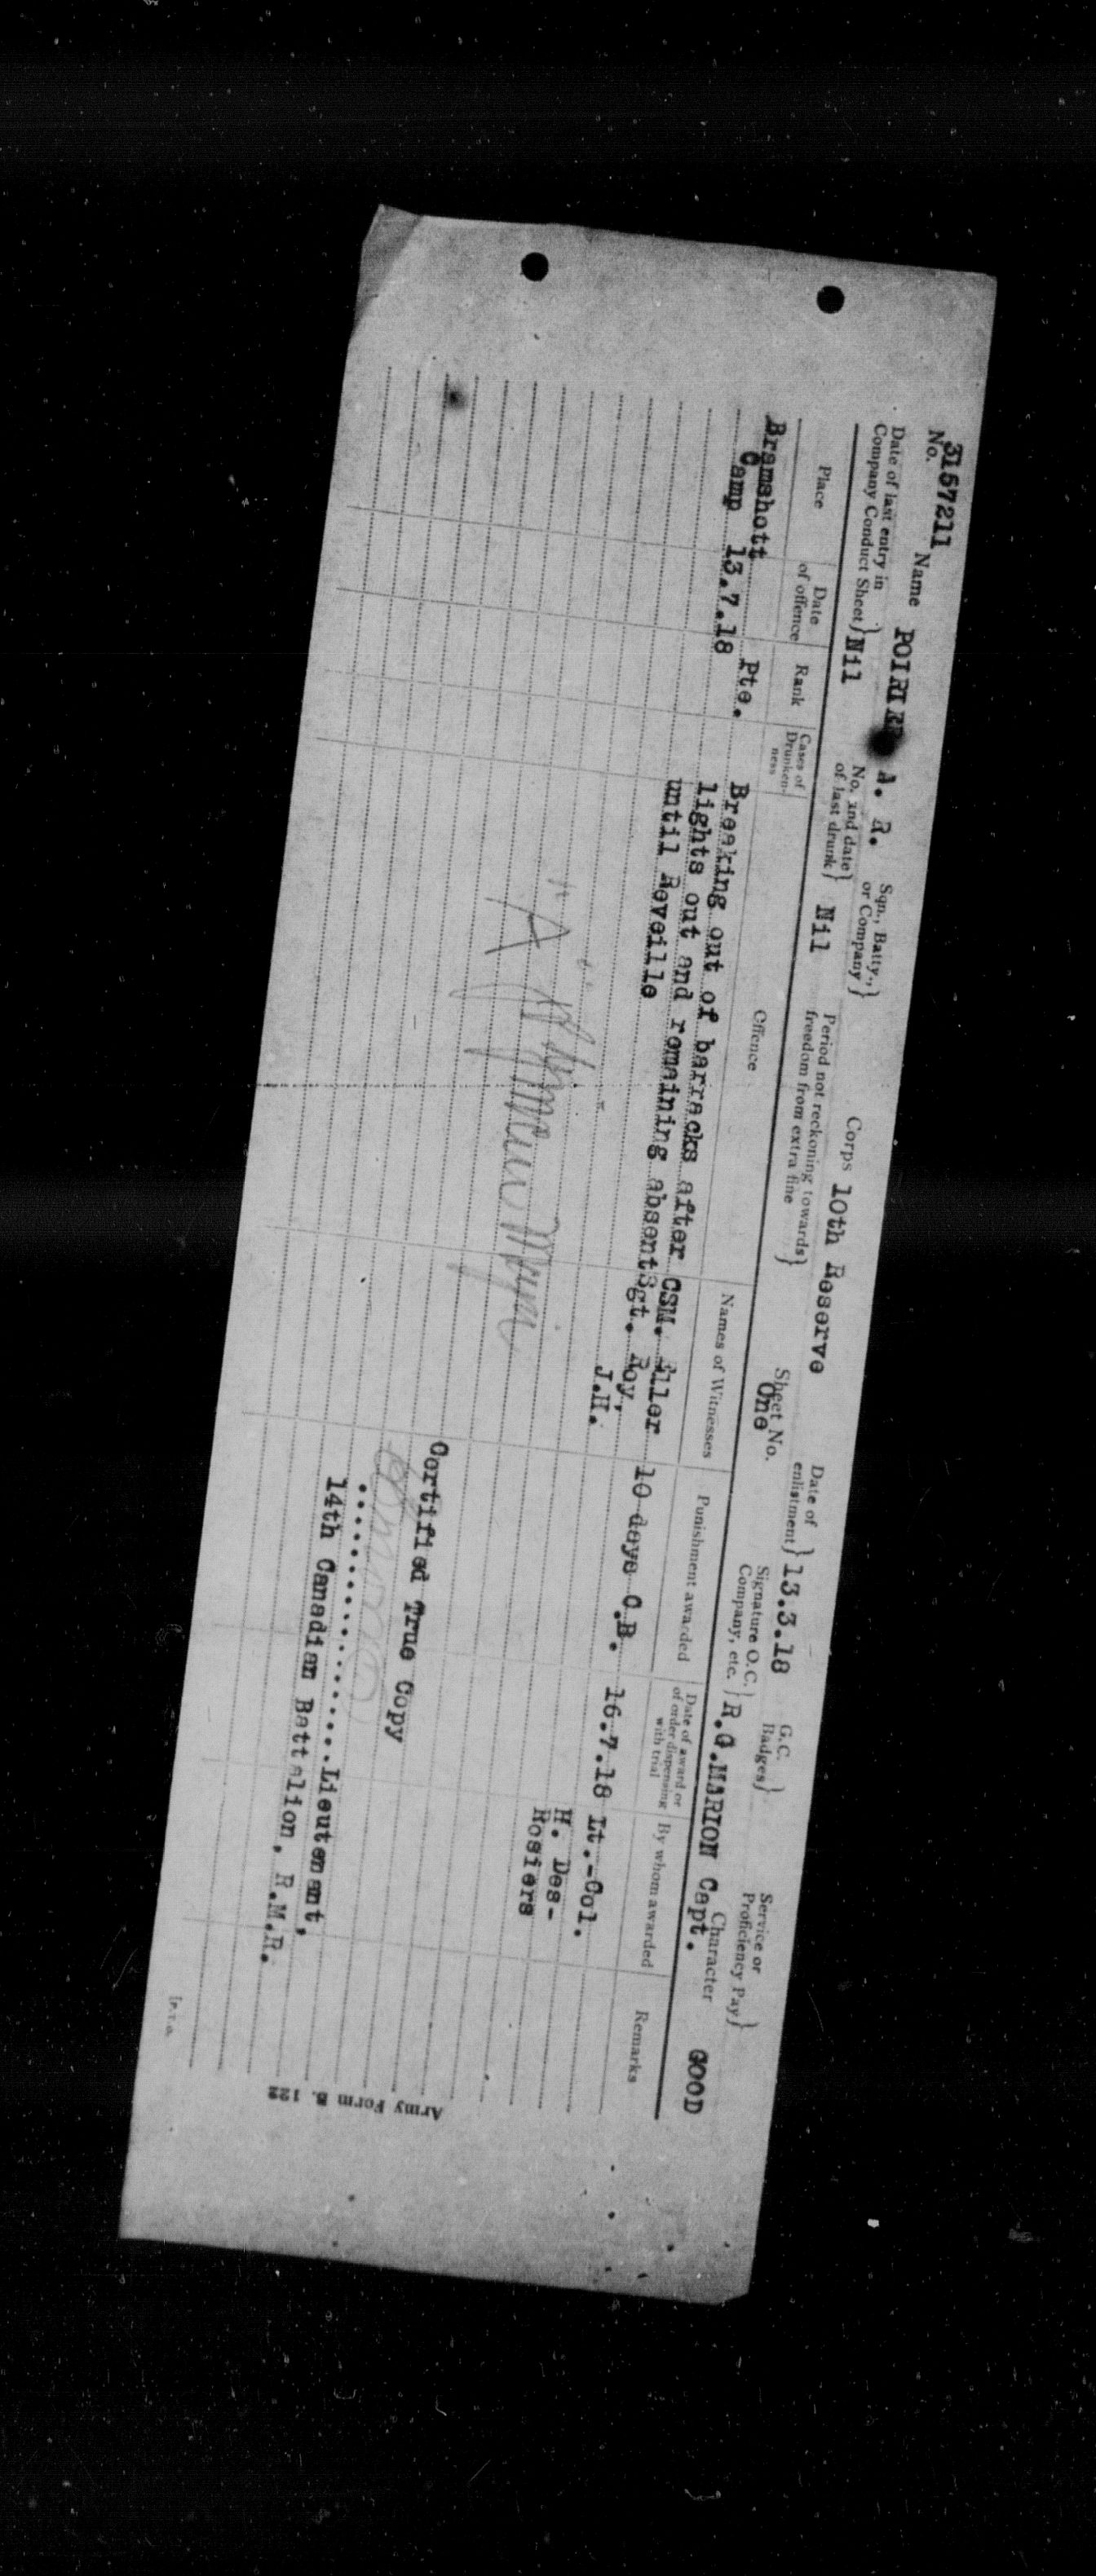 No. 3157211 Name POIRIER A. R. Sqn., Batty., or Company} Corps 10th Reserve Date of enlistment} 13.3.18 G.C. Badges} Service or Proficiency Pay}
Date of last entry in Company Conduct Sheet} Nil No. and date of last drunk} Nil Period not reckoning towards freedom from extra fine} Sheet No. One Signature O.C. Company, etc.} R.O.MARION Capt. Character GOOD
Place Date of offence Rank Cases of Drunkenness Offence Names of Witnesses Punishment awarded Date of award or of order dispensing with trial By whom awarded Remarks
Bramshott Pte. Breaking out of barracks after CSM. 10 days C.B. 16.7.18 Lt.-Col.
Camp 13.7.18 lights out and remaining absent Sgt. Roy, H. Des-
until Reveille J.H. Rosiers
Certified True Copy
..................Lieutenant,
14th Canadian Battalion, R.M.R.
[P.T.O.
Army Form B. 122